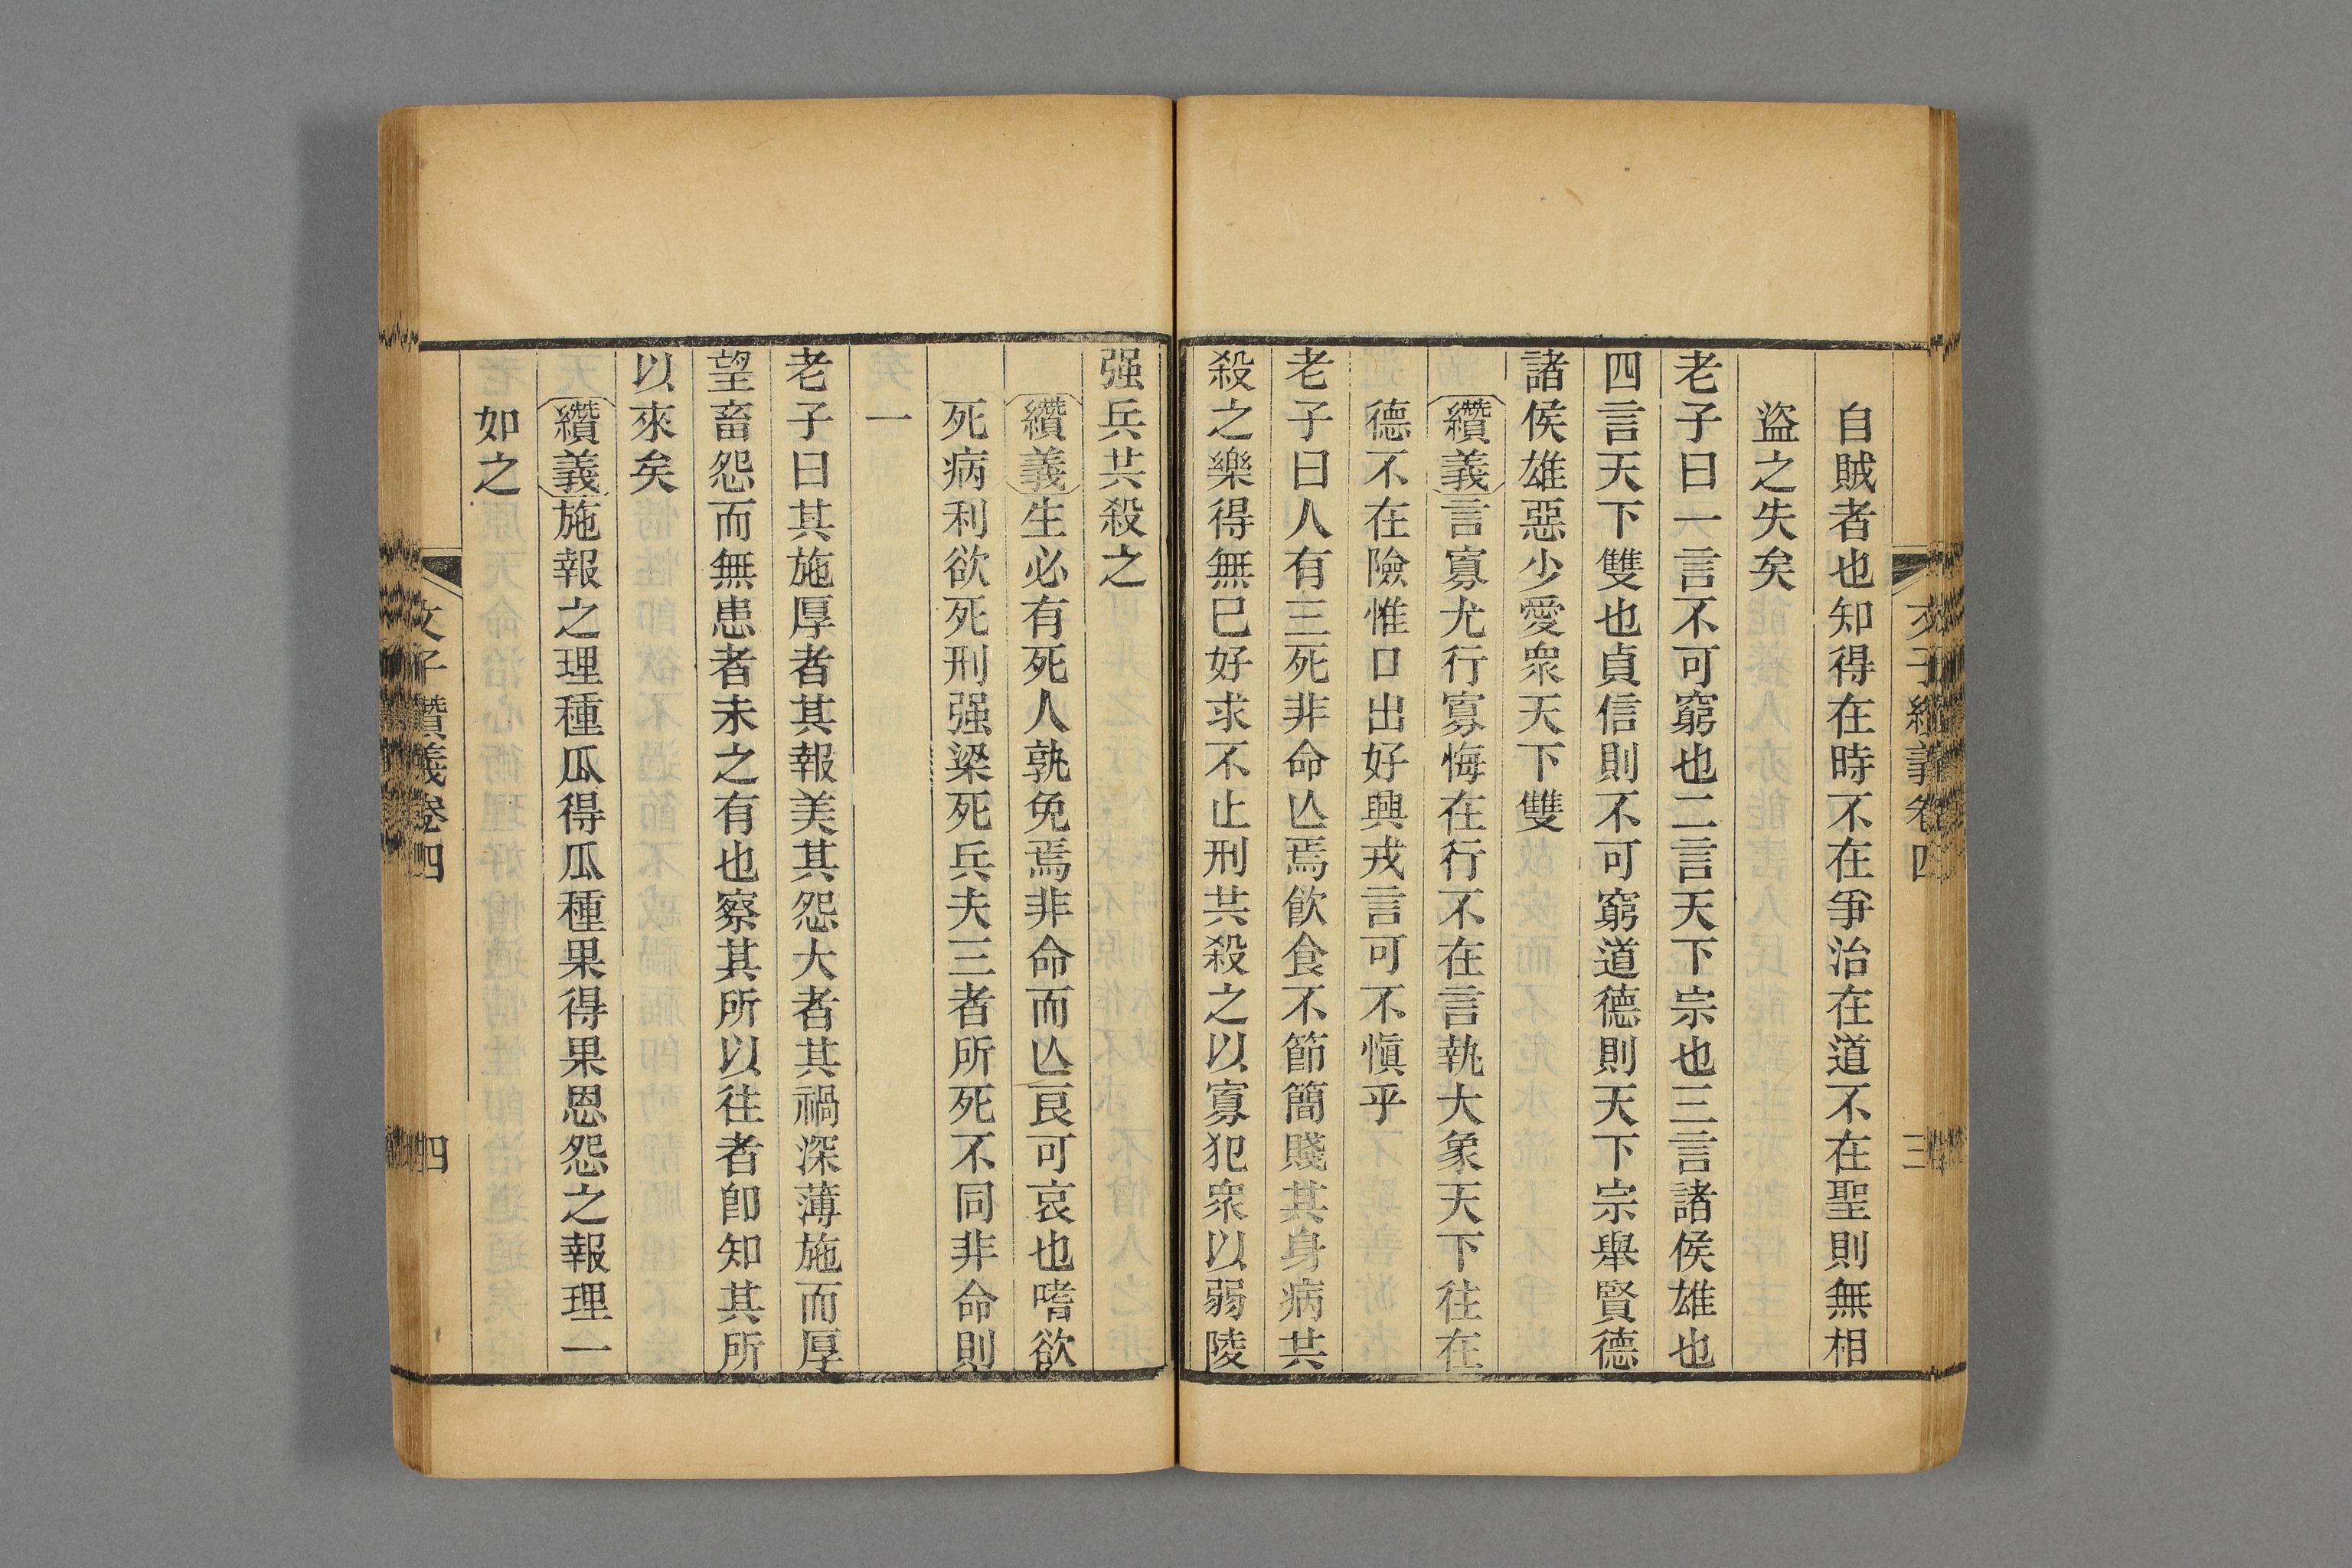 自賊者也知得在時不在爭治在道不在聖則無相
盜之失矣
老子曰一言不可窮也二言天下宗也三言諸侯雄也
四言天下雙也貞信則不可窮道德則天下宗舉賢德
諸侯雄惡少愛衆天下雙
纘義言寡尤行寡悔在行不在言執大象天下往在
德不在險惟口出好興戎言可不愼乎
老子曰人有三死非命亾焉飮食不節簡賤其身病共
殺之樂得無已好求不止刑共殺之以寡犯衆以弱陵
强兵共殺之
纘義生必有死人孰免焉非命而亾良可哀也嗜欲
死病利欲死刑强梁死兵夫三者所死不同非命則
一
老子曰其施厚者其報美其怨大者其禍深薄施而厚
望畜怨而無患者未之有也察其所以往者卽知其所
以來矣
纘義施報之理種瓜得瓜種果得果恩怨之報理一
如之
文子纘義卷四
四